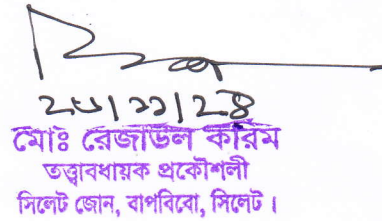 মোঃ রেজাউল করিম
তত্ত্বাবধায়ক প্রকৌশলী
সিলেট জোন, বাপবিবো, সিলেট।